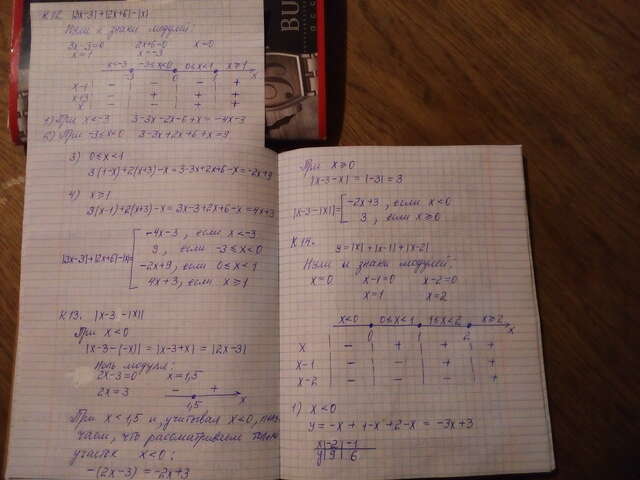 К12. |3x-3|+|2x+6|-|x|
Нули и знаки модулей:
3x-3=0 2x+6=0 x=0
x=1 x=-3
x<-3 -3≤x<0 0≤x<1 x≥1
-3 0 1 x
x-1 - - - +
x+3 - + + +
x - - + +
1) При x<-3 3-3x-2x-6+x=-4x-3
2) При -3≤x<0 3-3x+2x+6+x=9
3) 0≤x<1
3(1-x)+2(x+3)-x=3-3x+2x+6-x=-2x+9
4) x≥1
3(x-1)+2(x+3)-x=3x-3+2x+6-x=4x+3
|3x-3|+|2x+6|-|x|=
-4x-3, если x<-3
9, если -3≤x<0
-2x+9, если 0≤x<1
4x+3, если x≥1
К13. |x-3-|x||
При x<0
|x-3-(-x)|=|x-3+x|=|2x-3|
Ноль модуля:
2x-3=0 x=1,5
2x=3 - +
1,5 x
При x<1,5 и, учитывая x<0, полу-
чаем, что рассматриваем только
участок x<0:
-(2x-3)=-2x+3
При x≥0
|x-3-x|=|-3|=3
|x-3-|x||=
-2x+3, если x<0
3, если x≥0
К14.
y=|x|+|x-1|+|x-2|
Нули и знаки модулей:
x=0 x-1=0 x-2=0
x=1 x=2
x<0 0≤x<1 1≤x<2 x≥2
0 1 2 x
x - + + +
x-1 - - + +
x-2 - - - +
1) x<0
y=-x+1-x+2-x=-3x+3
x|-2|-1
y|9|6
BU
acc